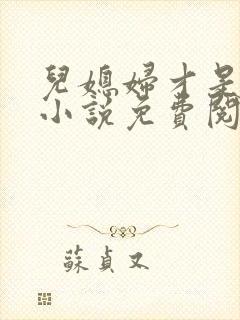 兒媳婦才是
小說免費閱
蘇貞又